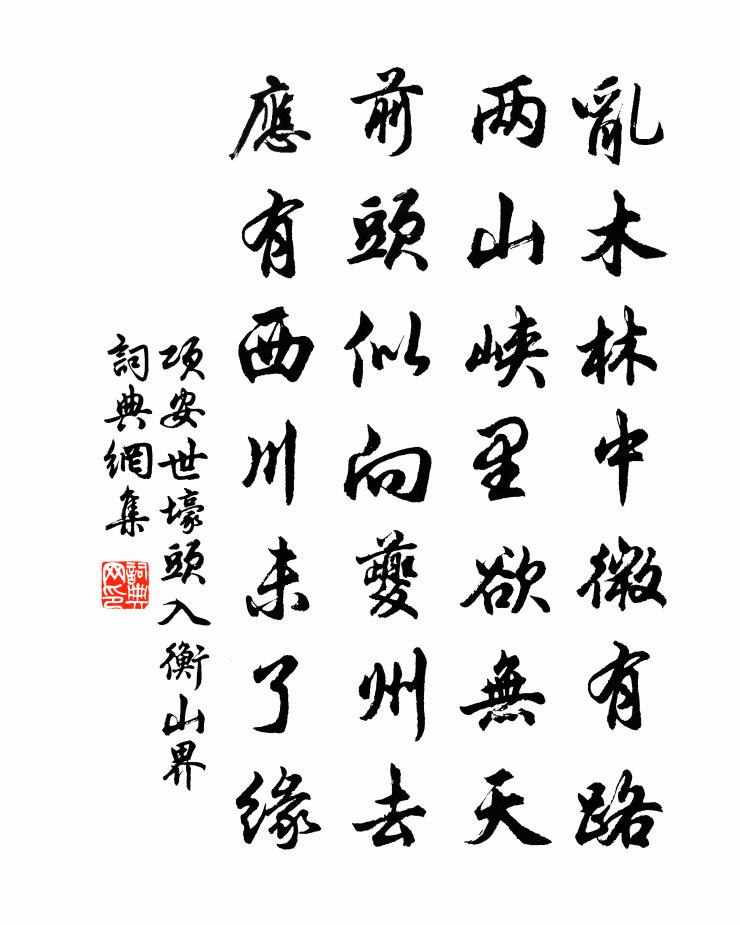 亂木林中微有路
两山峡里欲無天
前頭似向夔州去
應有西川未了緣
項安世壕頭入衡山界
詞典網集
詞典网印